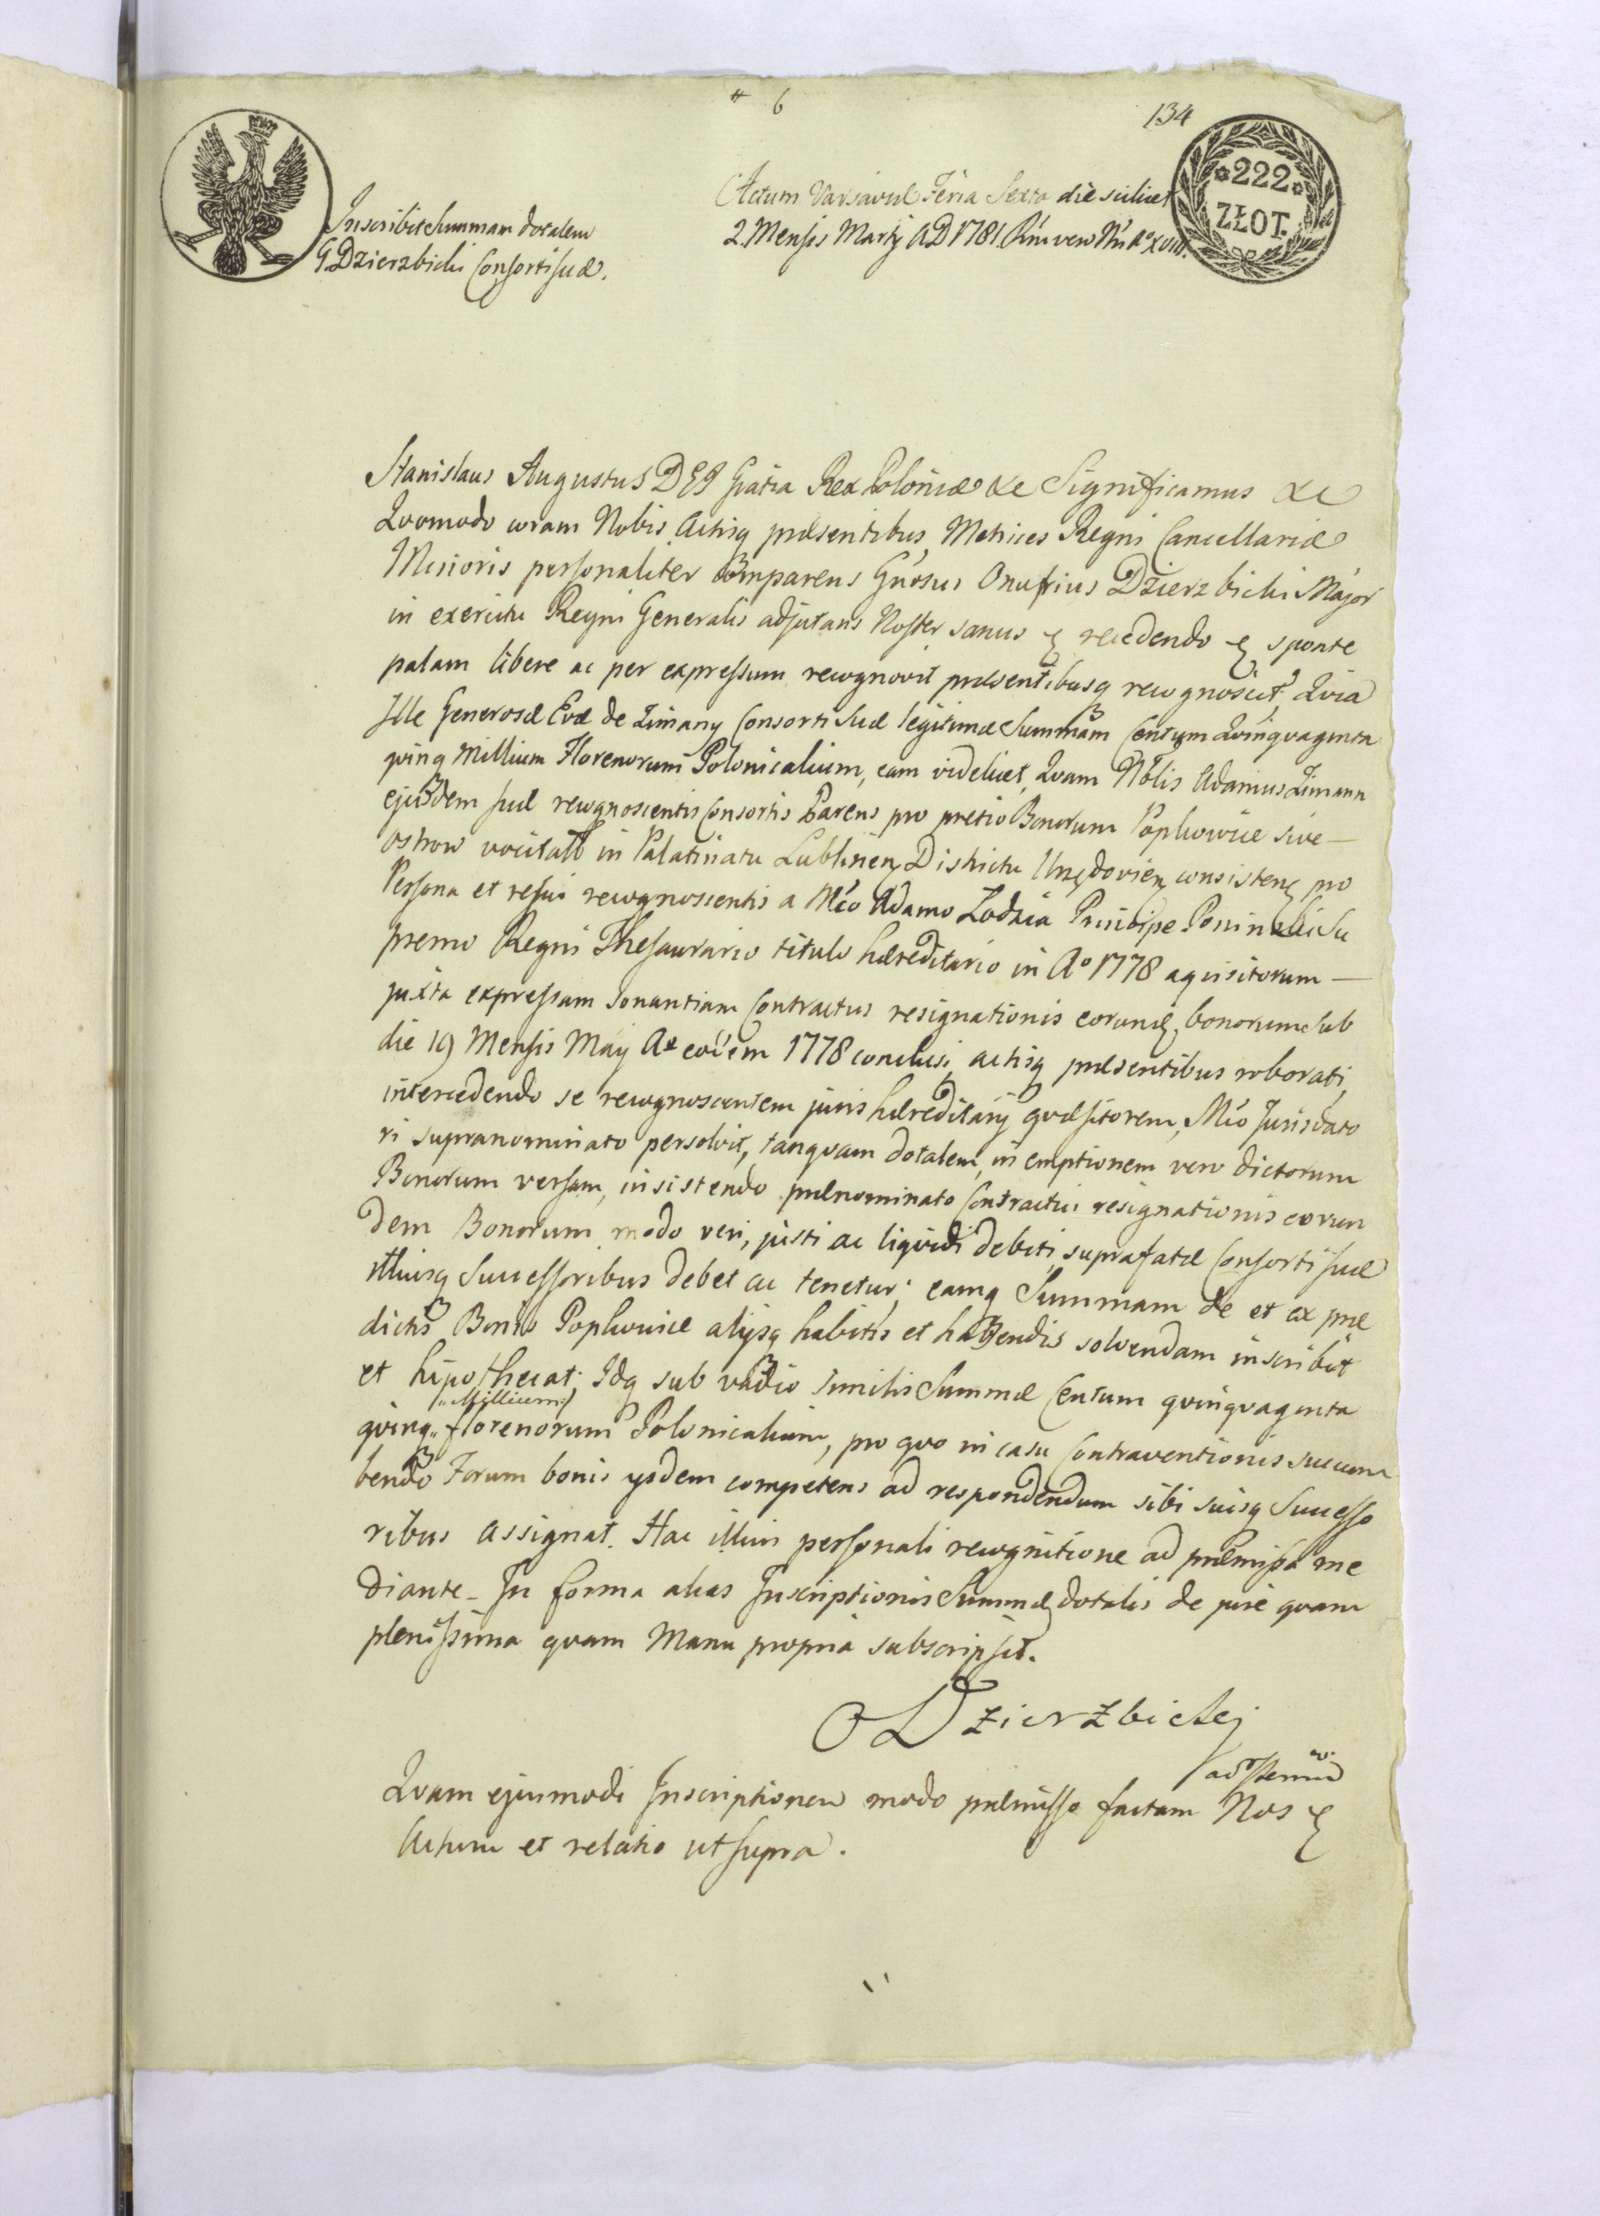 # 6
134
*222*
ZŁOT.
Inscribit Summam dotalem
G Dzierzbicki Consorti suæ.
Actum Varsaviæ Feria Sexta die scilicet
2 Mensis Martij AD 1781 Rni vero Nri Aº XVII.
Stanislaus Augustus DEI Gratia Rex Poloniæ &c Significamus &c
Qvomodo coram Nobis Actisq præsentibus Metrices Regni Cancellariæ
Minoris personaliter comparens Gnosus Onufrius Dzierzbicki Major
in exercitu Regni Generalis adjutans Noster sanus recedendo sponte
palam libere ac per expressum recognovit præsentibusq recognoscit, Qvia
Ille Generosæ Evæ de Zimany Consorti suæ legitimæ Summam Centum Qvinqvaginta
qvinq Millium Florenorum Polonicalium, eam videlicet, Qvam Nolis Adamus Zimann
ejusdem suæ recognoscentis Consortis Parens pro pretio Bonorum Popkowice sive
Ostrow vocitat in Palatinatu Lublinen Districtu Urzędovien consisten pro
Persona et re sui recognoscentis a Mco Adamo Lodzia Principe Poninski Su
premo Regni Thesaurario titulo hæreditario in Aº 1778 aqvisitorum
juxta expressam sonantiam Contractus resignationis eorund bonorum sub
die 19 Mensis May Aº eodem 1778 conclusi actisq præsentibus roborati,
intercedendo se recognoscentem juris hæreditarij qvæsitorem, Mco Jurisdato
ri supranominato persolvit, tanqvam dotalem, in emptionem vero dictorum
Bonorum versam, insistendo prænominato Contractui resignationis eorun
dem Bonorum modo veri, justi ac liqvidi debiti, suprafatæ Consorti suæ
illiusq Successoribus debet ac tenetur; eamq Summam de et ex præ
dictis Bonis Popkowice alijsq habitis et habendis solvendam inscribit
et hipothecat; Idq sub vadio similis Summæ Centum qvinqvaginta
Millium
qvinq florenorum Polonicalium, pro qvo in casu Contraventionis succum
bendo Forum bonis ijsdem competens ad respondendum sibi suisq Successo
ribus assignat. Hac illius personali recognitione ad præmissa me
diante. In forma alias Inscriptionis Summæ dotalis de jure qvam
plenissima qvam Manu propria subscripsit.
O Dzierzbicki
Qvam ejusmodi Inscriptionem modo præmisso factam Nos
Actum et relatio ut supra.